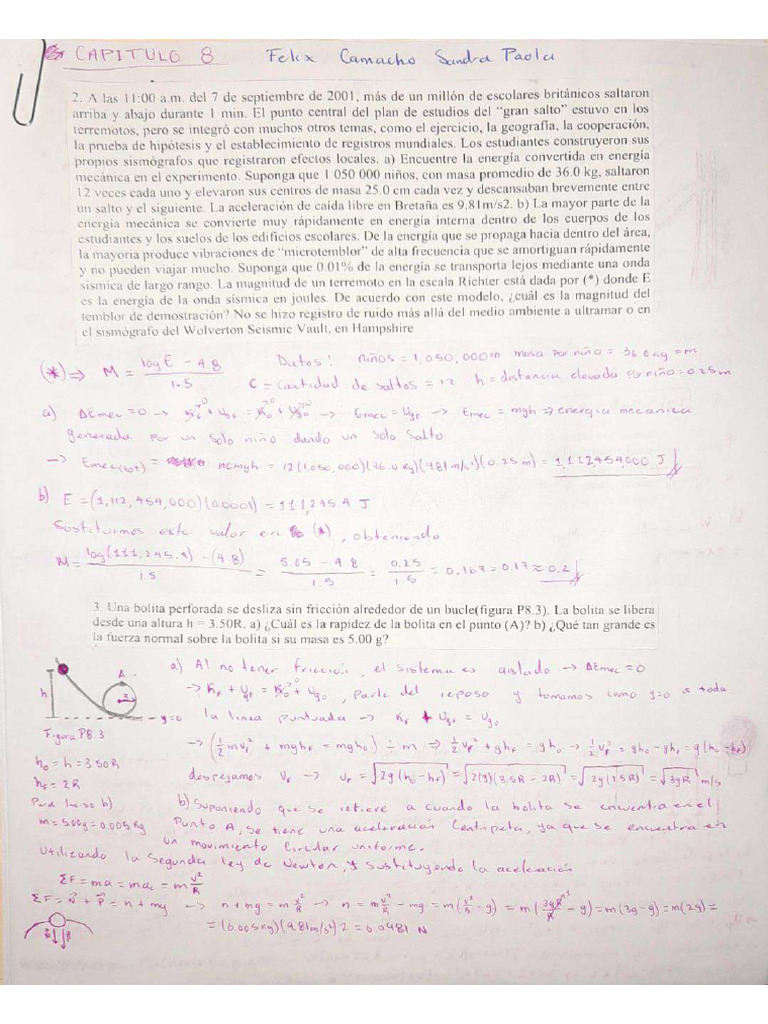 CAPITULO 8 Felix Camacho Sandra Paola
2. A las 11:00 a.m. del 7 de septiembre de 2001, más de un millón de escolares británicos saltaron
arriba y abajo durante 1 min. El punto central del plan de estudios del "gran salto" estuvo en los
terremotos, pero se integró con muchos otros temas, como el ejercicio, la geografía, la cooperación,
la prueba de hipótesis y el establecimiento de registros mundiales. Los estudiantes construyeron sus
propios sismógrafos que registraron efectos locales. a) Encuentre la energía convertida en energía
mecánica en el experimento. Suponga que 1 050 000 niños, con masa promedio de 36.0 kg, saltaron
12 veces cada uno y elevaron sus centros de masa 25.0 cm cada vez y descansaban brevemente entre
un salto y el siguiente. La aceleración de caída libre en Bretaña es 9.81m/s2. b) La mayor parte de la
energía mecánica se convierte muy rápidamente en energía interna dentro de los cuerpos de los
estudiantes y los suelos de los edificios escolares. De la energía que se propaga hacia dentro del área,
la mayoría produce vibraciones de "microtemblor" de alta frecuencia que se amortiguan rápidamente
y no pueden viajar mucho. Suponga que 0.01% de la energía se transporta lejos mediante una onda
sísmica de largo rango. La magnitud de un terremoto en la escala Richter está dada por (*) donde E
es la energía de la onda sísmica en joules. De acuerdo con este modelo, ¿cuál es la magnitud del
temblor de demostración? No se hizo registro de ruido más allá del medio ambiente a ultramar o en
el sismógrafo del Wolverton Seismic Vault, en Hampshire
(*) ⇒ M = (log E - 4.8)/1.5 Datos: niños = 1,050,000 = n masa por niño = 36.0 kg = m
C = cantidad de saltos = 12 h = distancia elevada por niño = 0.25m
a) ΔEmec = 0 → K_f + U_gf = K_0 + U_g0 → Emec = Ugf → Emec = mgh ⇒ energía mecánica
generada por un solo niño dando un solo salto
→ Emec(tot) = ncmgh = 12(1,050,000)(36.0 kg)(9.81 m/s²)(0.25 m) = 1,112,454,000 J
b) E = (1,112,454,000)(0.0001) = 111,245.4 J
Sustituimos este valor en (*), obteniendo
M = (log(111,245.4) - (4.8))/1.5 = (5.05 - 4.8)/1.5 = 0.25/1.5 = 0.167 = 0.17 ≈ 0.2
3. Una bolita perforada se desliza sin fricción alrededor de un bucle(figura P8.3). La bolita se libera
desde una altura h = 3.50R. a) ¿Cuál es la rapidez de la bolita en el punto (A)? b) ¿Qué tan grande es
la fuerza normal sobre la bolita si su masa es 5.00 g?
a) Al no tener fricción, el sistema es aislado → ΔEmec = 0
→ K_f + U_gf = K_0 + U_g0, parte del reposo y tomamos como y=0 a toda
la linea punteada → K_f + U_gf = U_g0
h A R y=0
Figura P8.3
→ (½mv_f² + mgh_f = mgh_0) ÷ m ⇒ ½v_f² + gh_f = gh_0 → ½v_f² = gh_0 - gh_f = g(h_0 - h_f)
h_0 = h = 3.50R
h_f = 2R
despejamos v_f → v_f = √2g(h_0 - h_f) = √2(g)(3.5R - 2R) = √2g(1.5R) = √3gR m/s
Para inciso b)
m = 5.00g = 0.005 kg
b) Suponiendo que se refiere a cuando la bolita se encuentra en el
Punto A, se tiene una aceleración centripeta, ya que se encuentra en
un movimiento circular uniforme.
Utilizando la segunda ley de Newton, y sustituyendo la aceleración
ΣF = ma = ma_c = m v²/R
ΣF = N + P = n + mg → n + mg = m v²/R → n = m v²/R - mg = m(v²/R - g) = m(3gR/R - g) = m(3g - g) = m(2g) =
= (0.005 kg)(9.81 m/s²) 2 = 0.0981 N